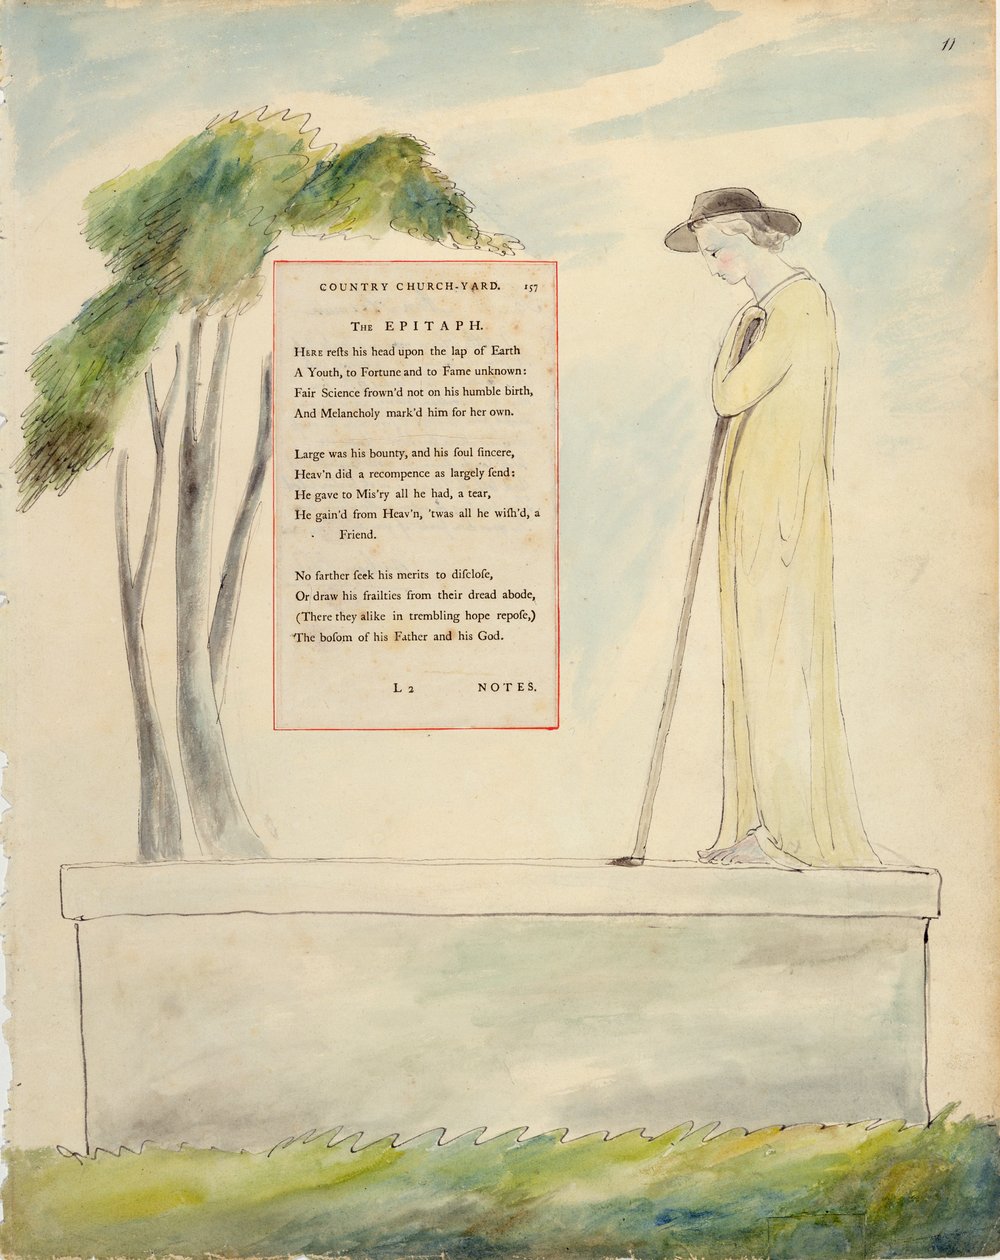 11
COUNTRY CHURCH-YARD. 157
The EPITAPH.
HERE reſts his head upon the lap of Earth
A Youth, to Fortune and to Fame unknown:
Fair Science frown'd not on his humble birth,
And Melancholy mark'd him for her own.
Large was his bounty, and his ſoul ſincere,
Heav'n did a recompence as largely ſend:
He gave to Mis'ry all he had, a tear,
He gain'd from Heav'n, 'twas all he wiſh'd, a
Friend.
No farther ſeek his merits to diſcloſe,
Or draw his frailties from their dread abode,
(There they alike in trembling hope repoſe,)
The boſom of his Father and his God.
L 2 NOTES.